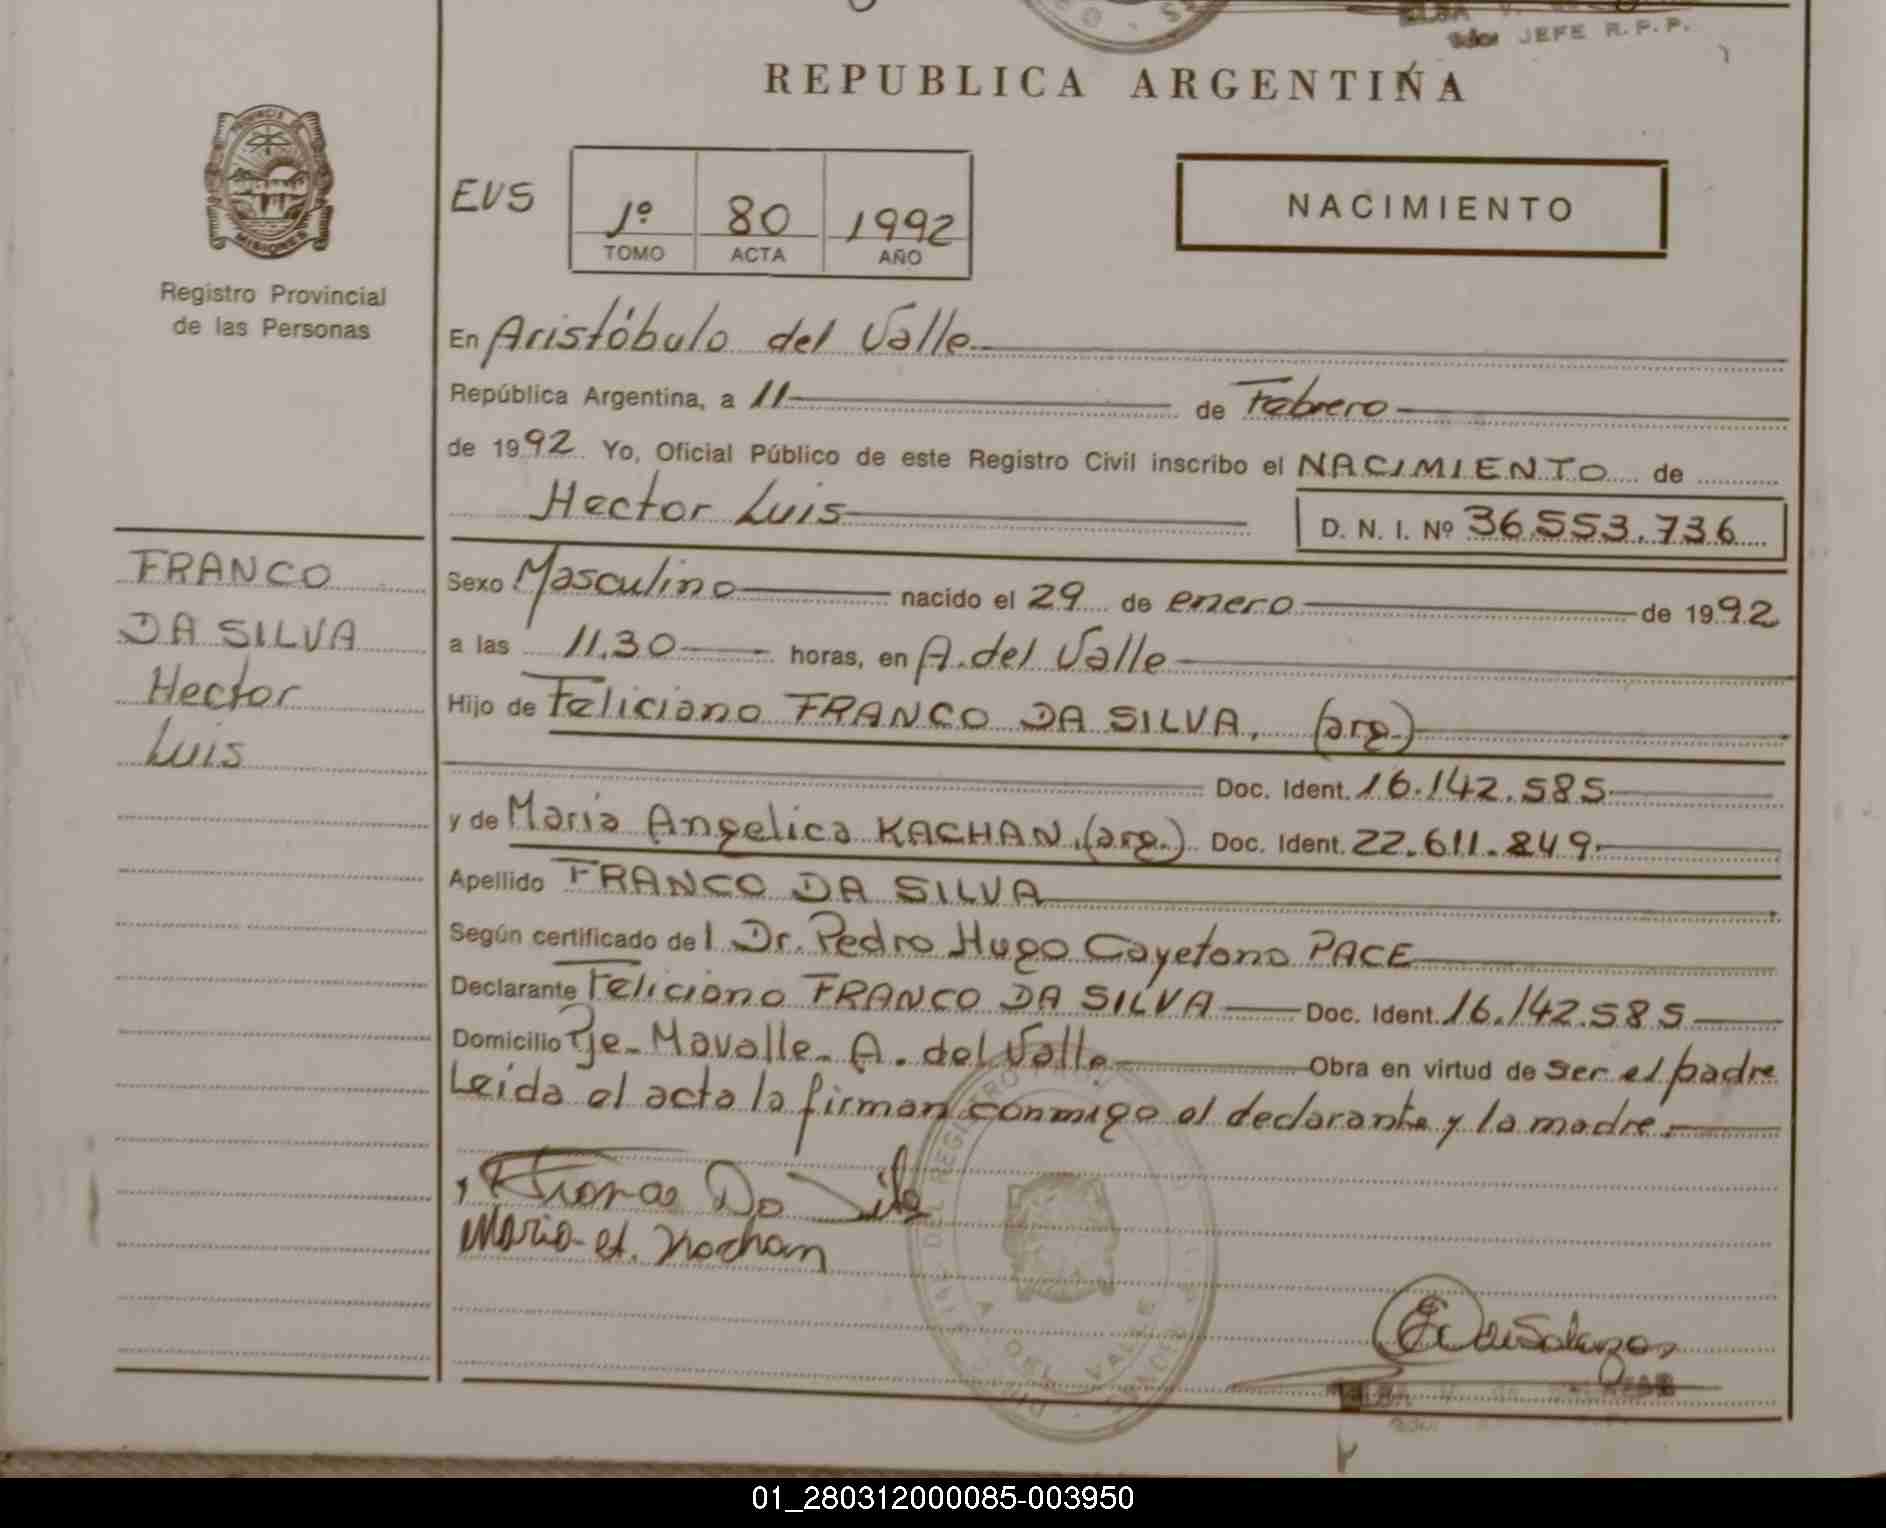 JEFE R.P.P.
REPUBLICA ARGENTINA
PROVINCIA DE MISIONES
Registro Provincial
de las Personas
EVS
1º 80 1992
TOMO ACTA AÑO
NACIMIENTO
En Aristóbulo del Valle
República Argentina, a 11 de Febrero
de 1992 Yo, Oficial Público de este Registro Civil inscribo el NACIMIENTO de
Hector Luis
D. N. I. Nº 36.553.736
FRANCO
DA SILVA
Hector
Luis
Sexo Masculino nacido el 29 de enero de 1992
a las 11.30 horas, en A. del Valle
Hijo de Feliciano FRANCO DA SILVA, (arg.)
Doc. Ident. 16.142.585
y de Maria Angelica KACHAN, (arg.) Doc. Ident. 22.611.849.
Apellido FRANCO DA SILVA
Según certificado del Dr. Pedro Hugo Cayetano PACE
Declarante Feliciano FRANCO DA SILVA Doc. Ident. 16.142.585
Domicilio Pje. Mavalle - A. del Valle Obra en virtud de ser el padre
Leida el acta la firman conmigo el declarante y la madre.
Franco Da Silva
Maria A. Kachan
A. DEL VALLE
01_280312000085-003950